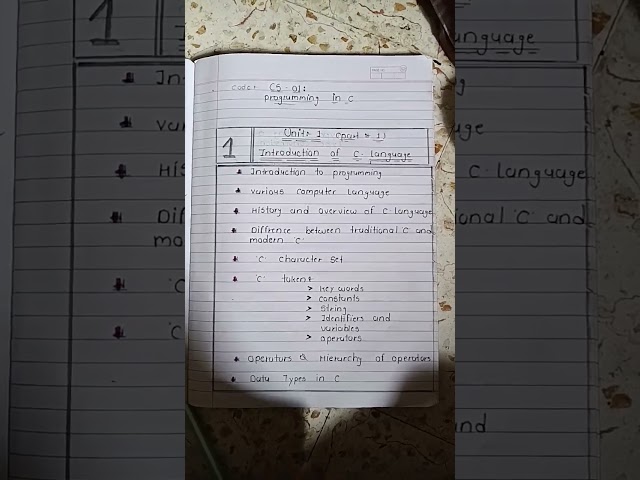 Code: CS-01:
programming in C
1
Unit: 1 (part : 1)
Introduction of C-language
Introduction to programming
Various computer Language
History and overview of C Language
Diffrence between traditional C and
modern 'C'
'C' character set
'C' tokens
> key words
> constants
> String
> Identifiers and
variables
> operators
operators & Hierarchy of operators
Data Types in C